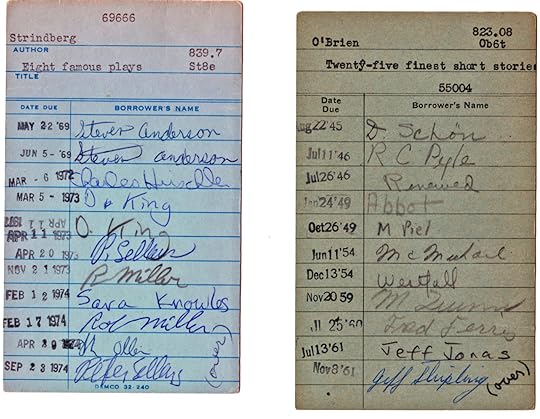 69666
Strindberg
AUTHOR
839.7
Eight famous plays St8e
TITLE
DATE DUE BORROWER'S NAME
MAY 22 '69 Steven Anderson
JUN 5 - '69 Steven Anderson
MAR - 6 1972 Charles
MAR 5 - 1973 D King
APR 11 1973 D. King
APR 20 1973 P. Sellers
NOV 21 1973 R Miller
FEB 12 1974 Sara Knowles
FEB 17 1974 Rod Miller
APR 1974
SEP 23 1974 Peter Sellers
(over)
DEMCO 32-240
823.08
O'Brien Ob6t
Twenty-five finest short stories
55004
Date Due Borrower's Name
Aug 22'45 D Schön
Jul 11'46 R C Pyle
Jul 26'46 Renewed
Jan 24'49 Abbot
Oct 26'49 M Piel
Jun 11'54 McMichael
Dec 13'54 Westfall
Nov 20 59 M
25'60 Fred Ferris
Jul 13'61 Jeff Jonas
Nov 8'61 Geff
(over)